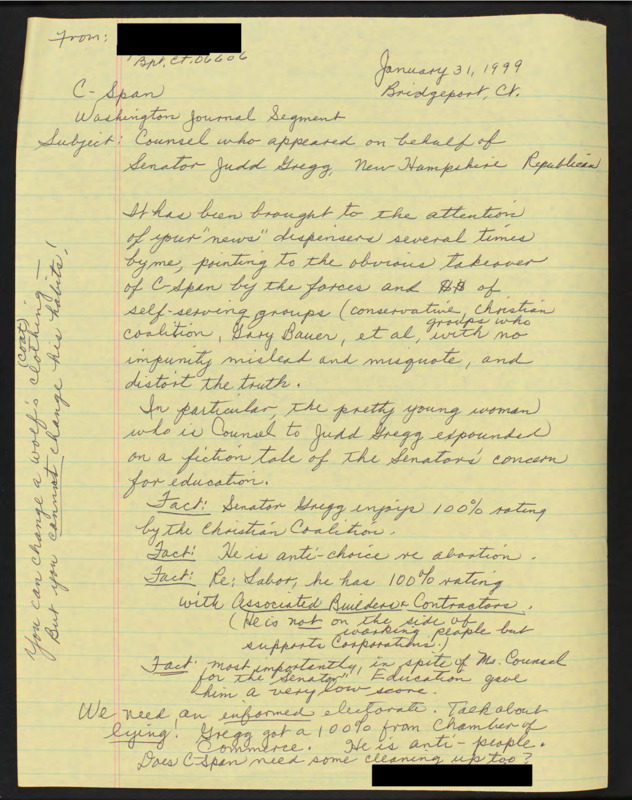 From:
Bpt, Ct. 06606
January 31, 1999
Bridgeport, Ct.
C-Span
Washington Journal Segment
Subject: Counsel who appeared on behalf of
Senator Judd Gregg, New Hampshire Republican
It has been brought to the attention
of your "news" dispensers several times
by me, pointing to the obvious takeover
of C-Span by the forces and $$ of
self-serving groups (conservative, Christian
coalition, Gary Bauer, et al, groups who with no
impunity mislead and misquote, and
distort the truth.
In particular, the pretty young woman
who is Counsel to Judd Gregg expounded
on a fiction tale of the Senator's concern
for education.
Fact: Senator Gregg enjoys 100% rating
by the Christian Coalition.
Fact: He is anti-choice re abortion.
Fact: Re: Labor, he has 100% rating
with Associated Builders & Contractors.
(He is not on the side of
working people but
supports Corporations.)
Fact: most importantly, in spite of Ms. Counsel
for the Senator", Education gave
him a very low score.
We need an informed electorate. Talk about
lying! Gregg got a 100% from Chamber of
Commerce. He is anti-people.
Does C-Span need some cleaning up too?
You can change a wolf's clothing (coat) —
But you cannot change his habits!